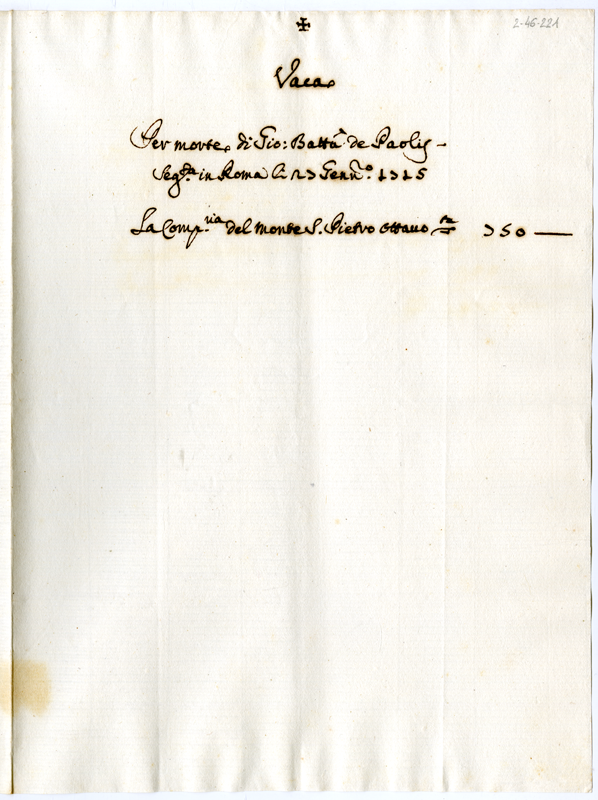 ✠
2-46-221
Vaca
Per morte di Gio: Batta de Paolis
Segta in Roma li 23 Gennº. 1715
La Comp.ria del monte S. Pietro ottauo 750 —